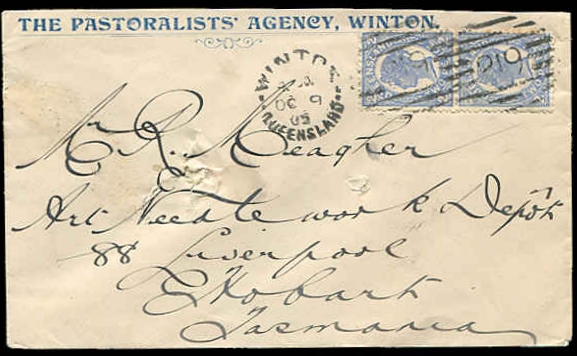 THE PASTORALISTS' AGENCY, WINTON.
WINTON
OC 9
05
QUEENSLAND
Mr R. Meagher
Art Needlework Depôt
88 Liverpool
Hobart
Tasmania